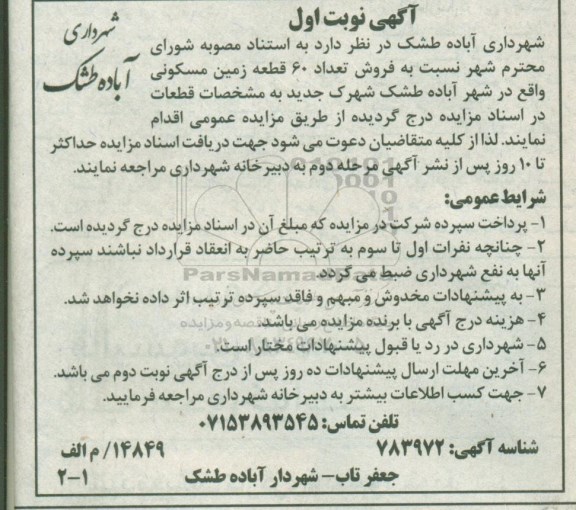 آگهی نوبت اول
شهرداری
آباده طشک
شهرداری آباده طشک در نظر دارد به استناد مصوبه شورای
محترم شهر نسبت به فروش تعداد ۶۰ قطعه زمین مسکونی
واقع در شهر آباده طشک شهرک جدید به مشخصات قطعات
در اسناد مزایده درج گردیده از طریق مزایده عمومی اقدام
نمایند. لذا از کلیه متقاضیان دعوت می شود جهت دریافت اسناد مزایده حداکثر
تا ۱۰ روز پس از نشر آگهی مرحله دوم به دبیرخانه شهرداری مراجعه نمایند.
شرایط عمومی:
۱- پرداخت سپرده شرکت در مزایده که مبلغ آن در اسناد مزایده درج گردیده است.
۲- چنانچه نفرات اول تا سوم به ترتیب حاضر به انعقاد قرارداد نباشند سپرده
آنها به نفع شهرداری ضبط می گردد.
ParsNamad
۳- به پیشنهادات مخدوش و مبهم و فاقد سپرده ترتیب اثر داده نخواهد شد.
۴- هزینه درج آگهی با برنده مزایده می باشد.
۵- شهرداری در رد یا قبول پیشنهادات مختار است.
۶- آخرین مهلت ارسال پیشنهادات ده روز پس از درج آگهی نوبت دوم می باشد.
۷- جهت کسب اطلاعات بیشتر به دبیرخانه شهرداری مراجعه فرمایید.
تلفن تماس: ۰۷۱۵۳۸۹۳۵۴۵
شناسه آگهی: ۷۸۳۹۷۲
۱۴۸۴۹/ م الف
جعفر تاب- شهردار آباده طشک
۲-۱